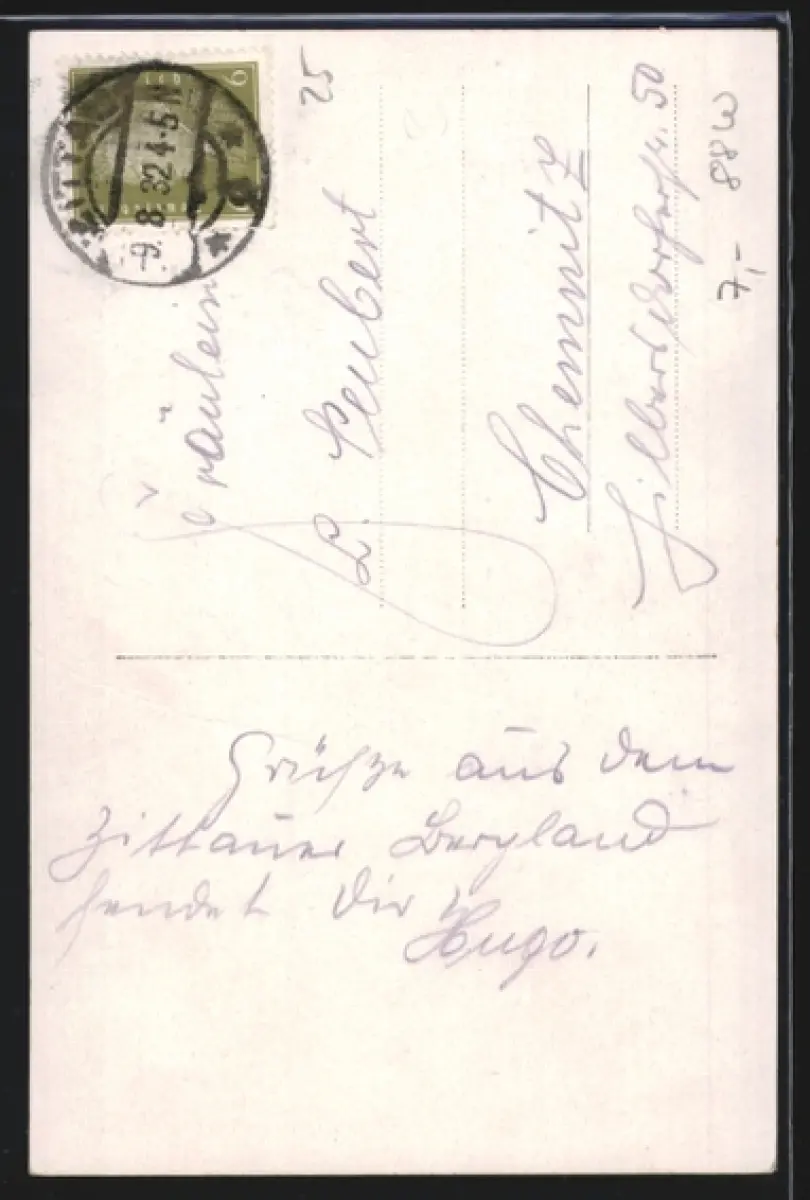 ZITTAU
-9.8.32 4-5 N
6
25
Fräulein
L. Leubert
Chemnitz
Hilbersdorferstr. 50
7,- 88W
Grüße aus dem
Zittauer Bergland
sendet Dir
Hugo.